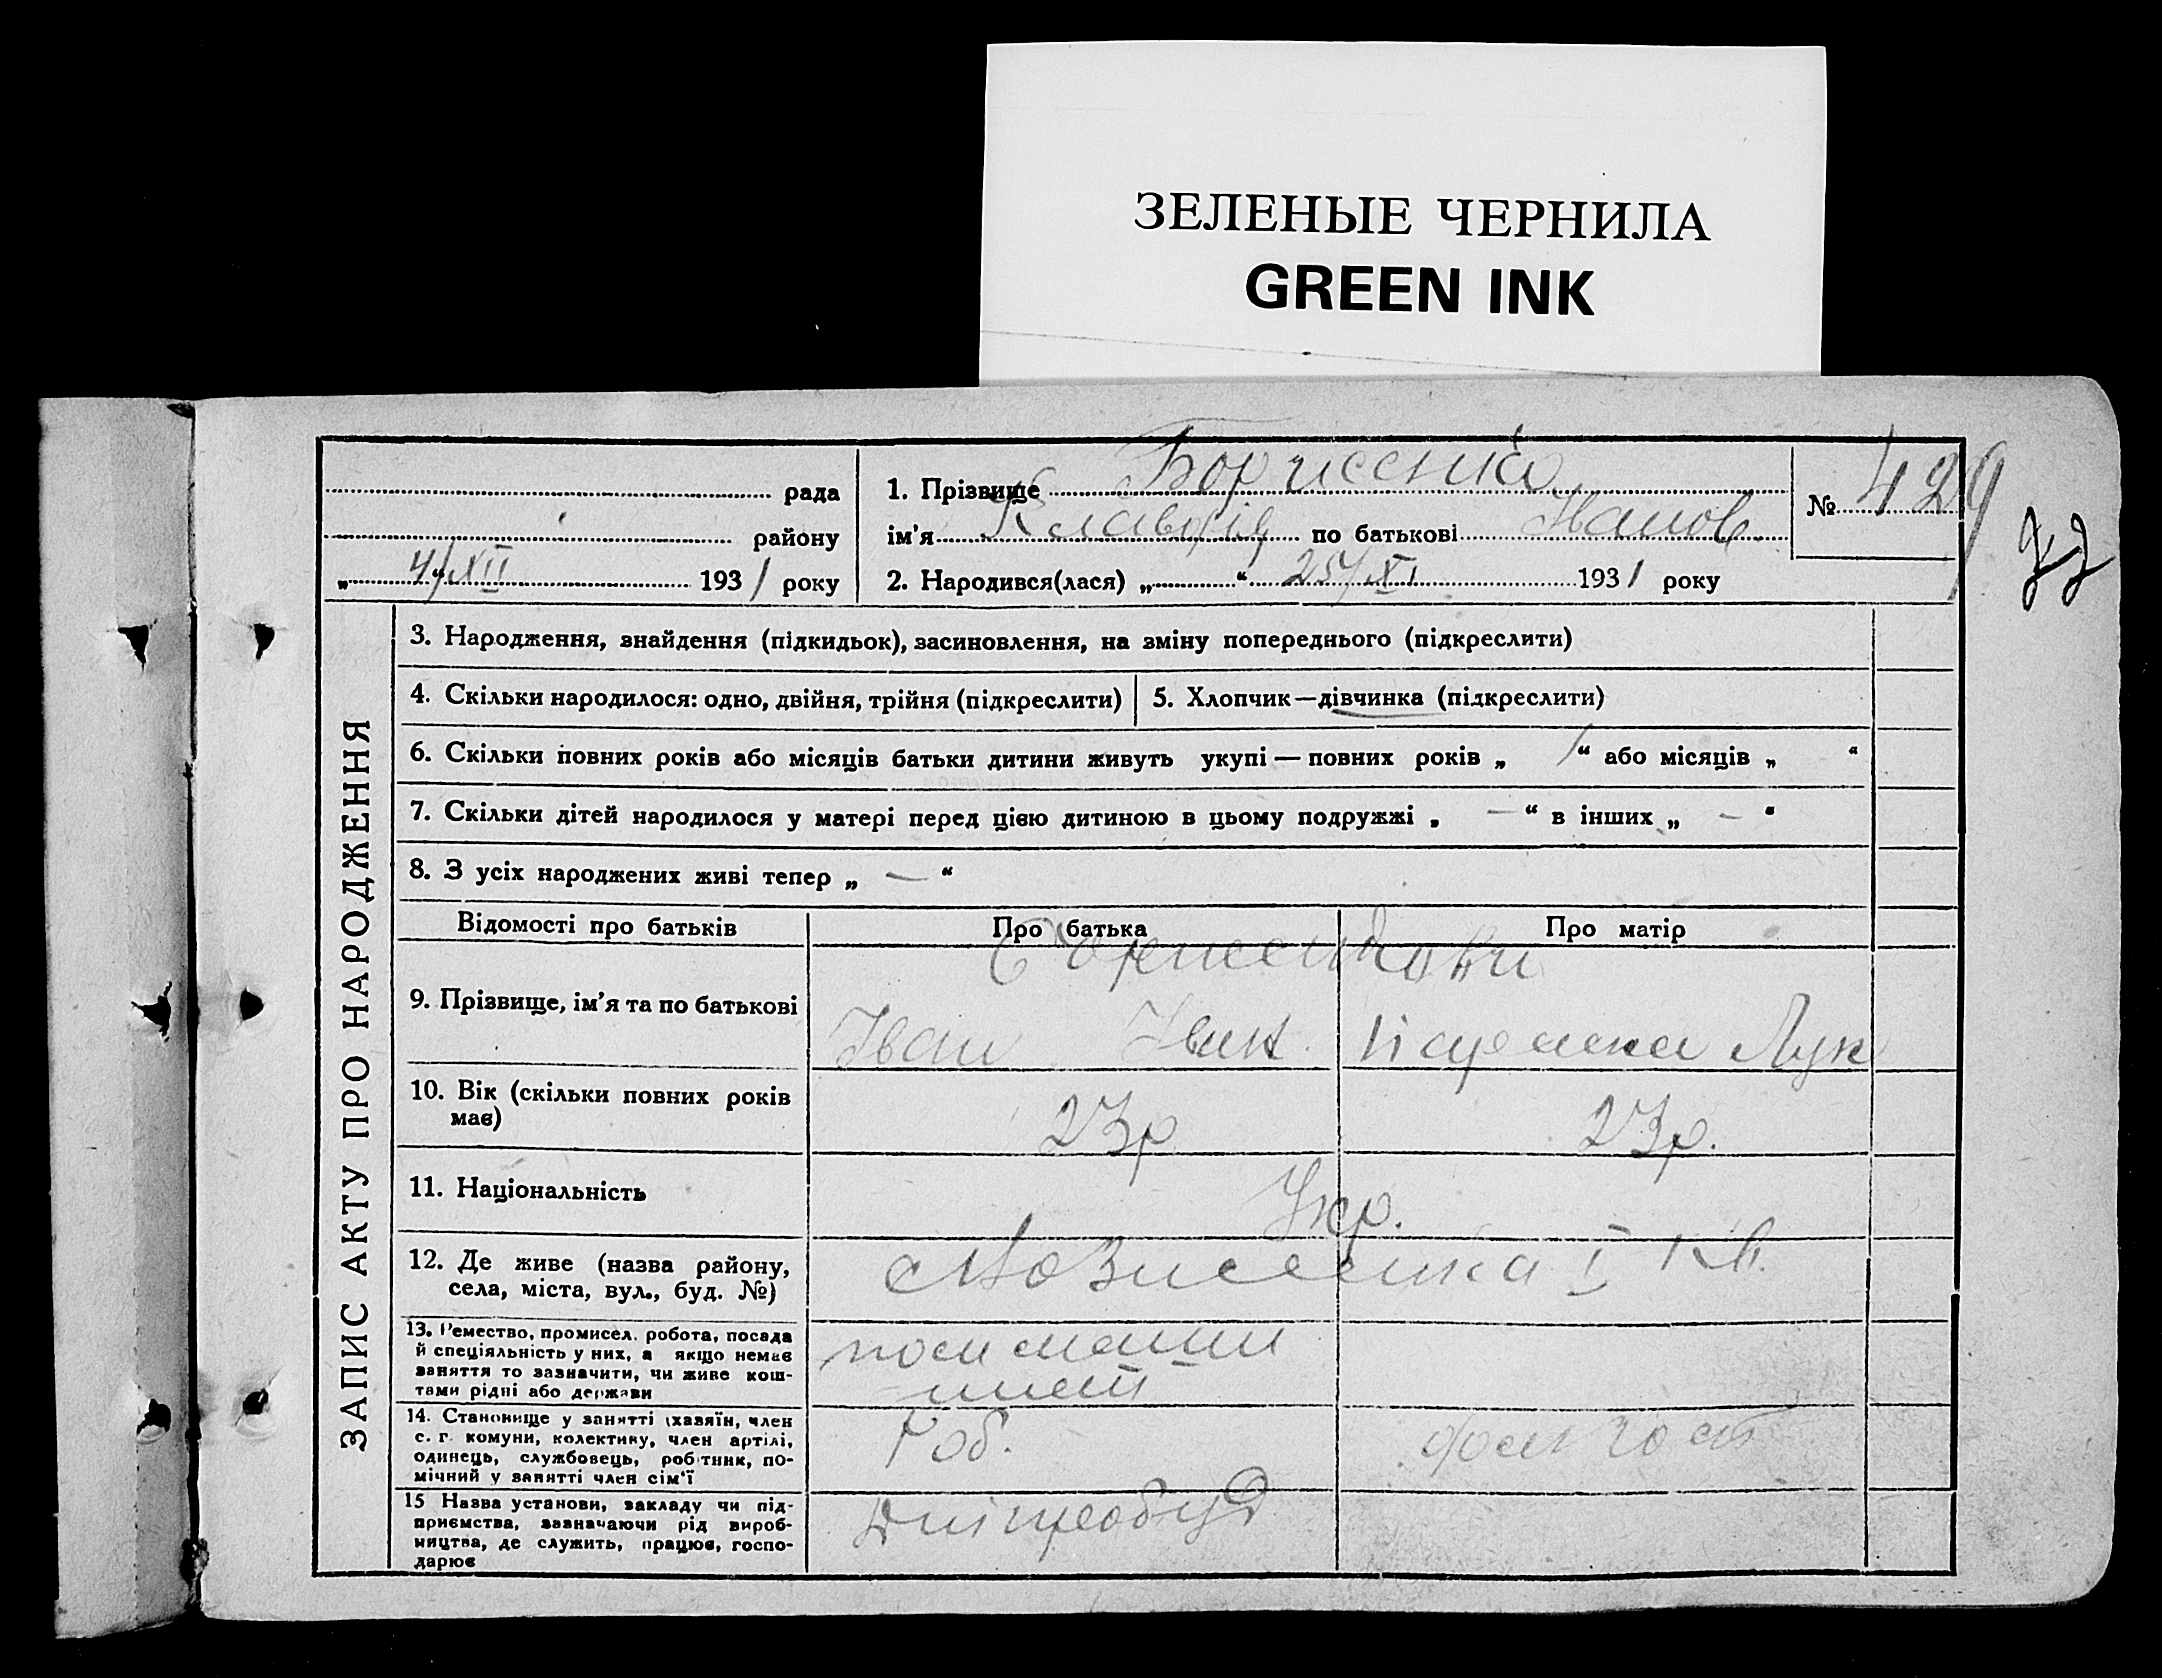 ЗЕЛЕНЫЕ ЧЕРНИЛА
GREEN INK
рада
району
„ 4/XII 1931 року
1. Прізвище Борисенко
ім'я Клавдія по батькові Иванов.
2. Народився(лася) „ “ 25/XI 1931 року
№ 429
22
ЗАПИС АКТУ ПРО НАРОДЖЕННЯ
3. Народження, знайдення (підкидьок), засиновлення, на зміну попереднього (підкреслити)
4. Скільки народилося: одно, двійня, трійня (підкреслити)
5. Хлопчик—дівчинка (підкреслити)
6. Скільки повних років або місяців батьки дитини живуть укупі — повних років „ 1 “ або місяців „ “
7. Скільки дітей народилося у матері перед цією дитиною в цьому подружжі „ — “ в інших „ — “
8. З усіх народжених живі тепер „ — “
Відомості про батьків
Про батька
Про матір
9. Прізвище, ім'я та по батькові
Борисенкови
Іван Іван.
Лук
10. Вік (скільки повних років
має)
23р
23р.
11. Національність
Укр.
12. Де живе (назва району,
села, міста, вул., буд. №)
I кв.
13. Ремество, промисел, робота, посада
й спеціяльність у них, а якщо немає
заняття то зазначити, чи живе кош-
тами рідні або держави
пом машин
ист
14. Становище у занятті (хазяїн, член
с. г. комуни, колективу, член артілі,
одинець, службовець, робітник, по-
мічний у занятті член сім'ї
Роб.
дом гост
15 Назва установи, закладу чи під-
приємства, зазначаючи рід вироб-
ництва, де служить, працює, госпо-
дарює
Дніпробуд